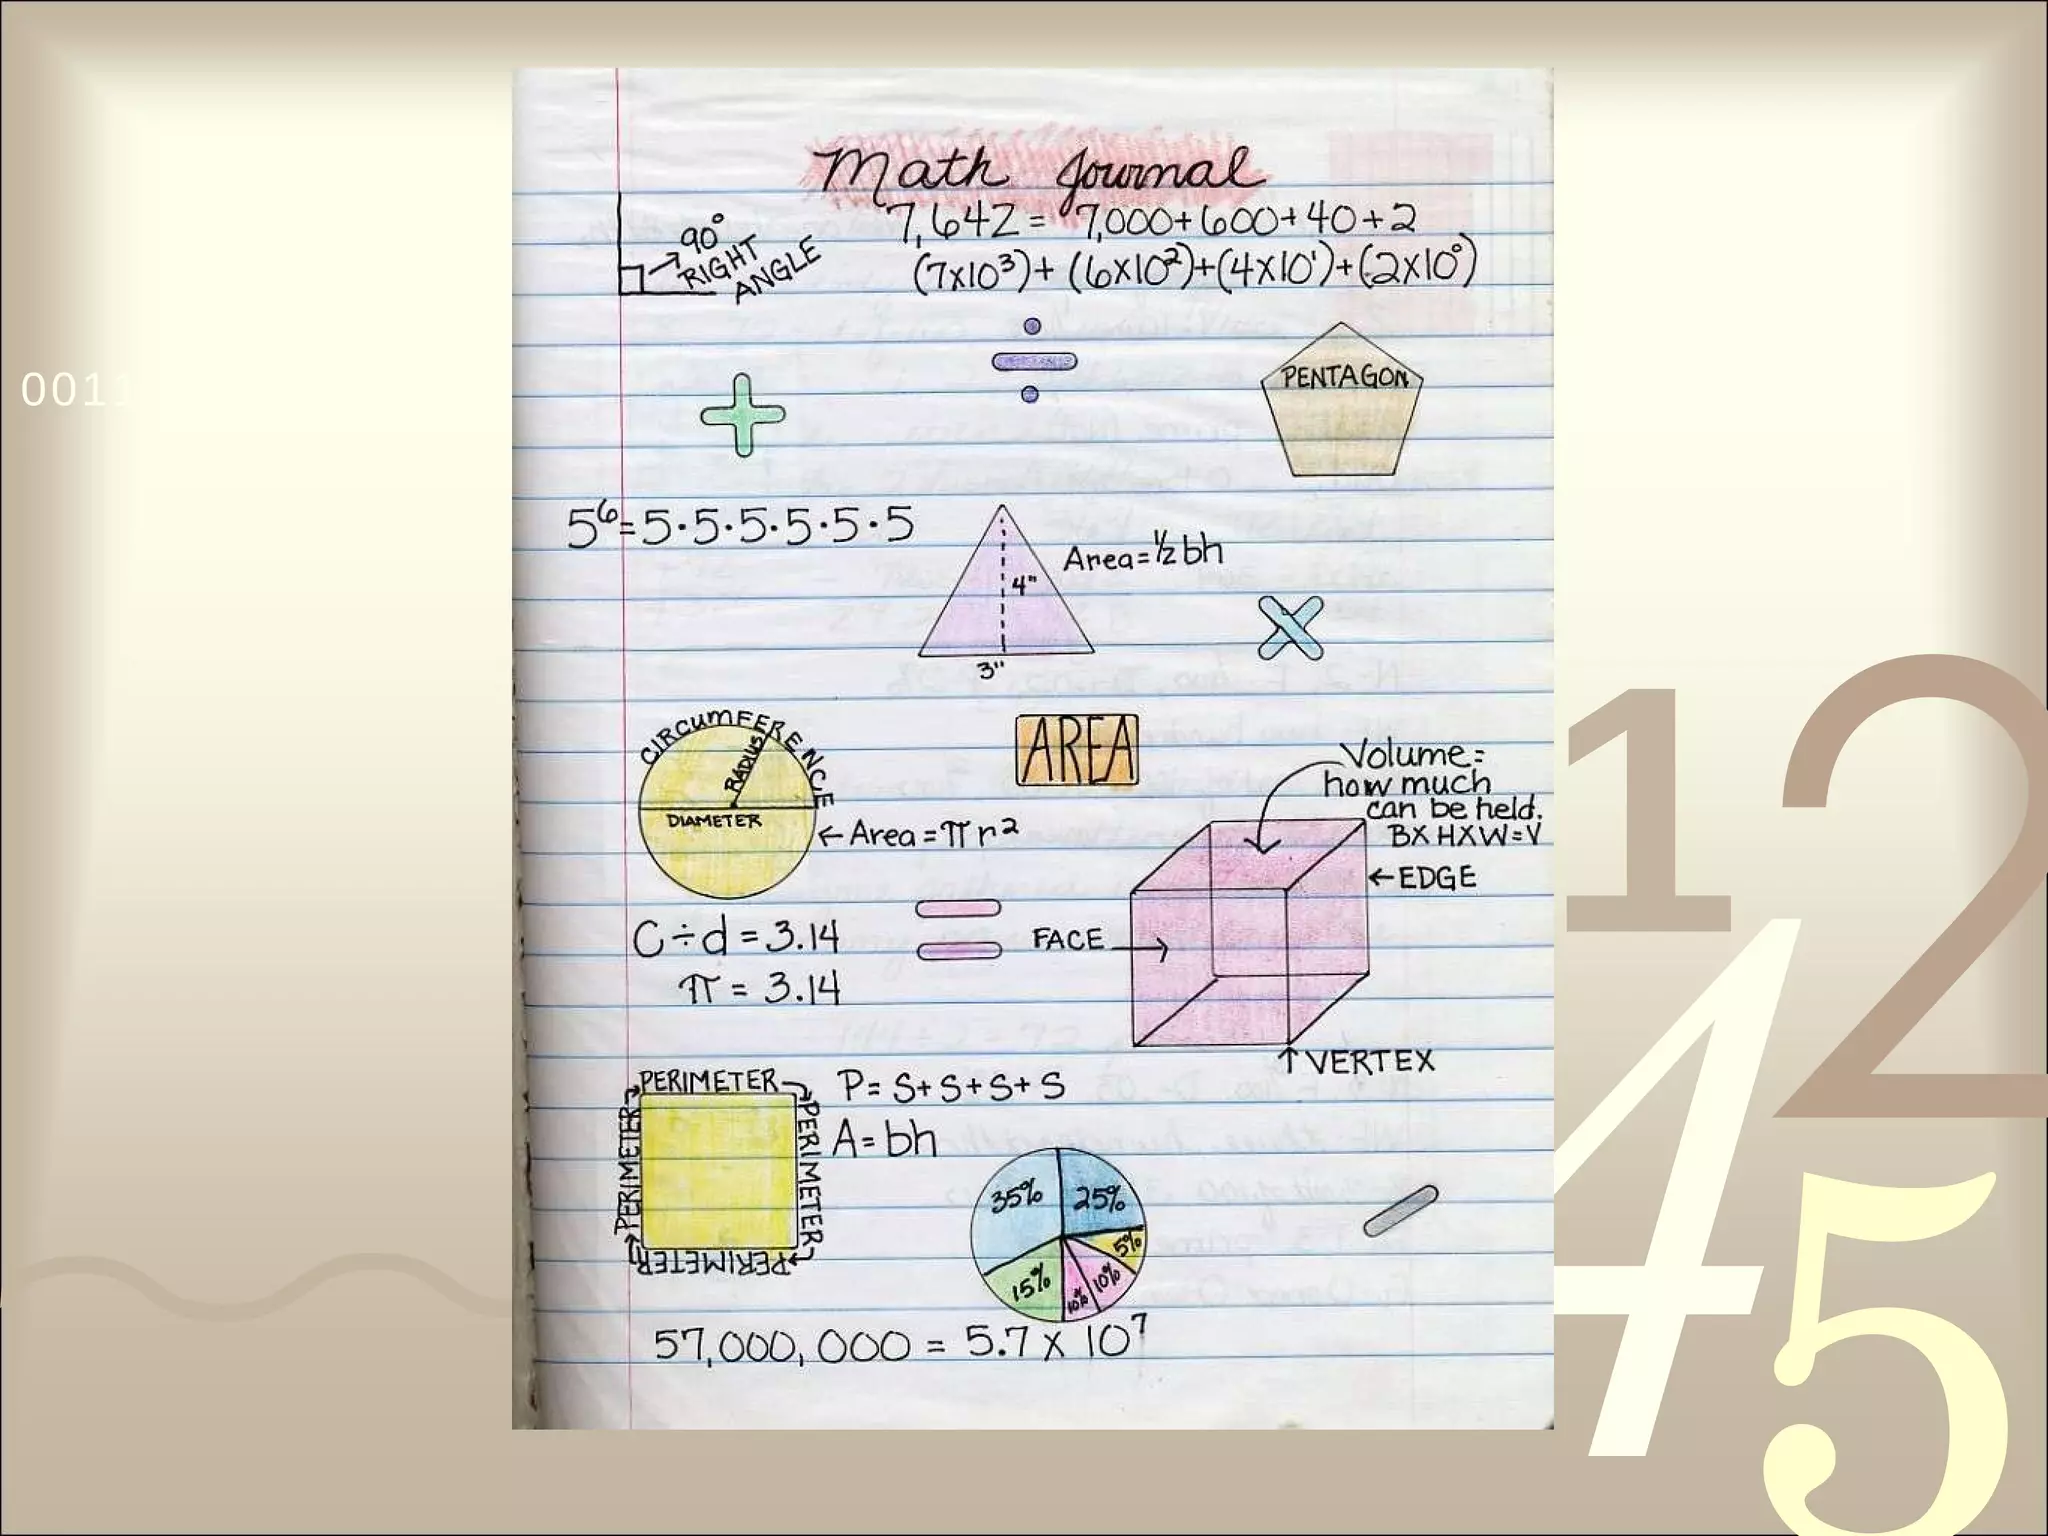 Math Journal
7,642 = 7,000+600+40+2
(7x10³)+ (6x10²)+(4x10¹)+(2x10⁰)
90°
RIGHT
ANGLE
0011
PENTAGON
5⁶=5·5·5·5·5·5
Area=½bh
4"
3"
CIRCUMFERENCE
RADIUS
DIAMETER
←Area=πr²
AREA
Volume=
how much
can be held.
BXHXW=V
←EDGE
C÷d=3.14
π=3.14
FACE→
↑VERTEX
PERIMETER
PERIMETER
PERIMETER
PERIMETER
P=S+S+S+S
A=bh
35%
25%
5%
10%
10%
15%
57,000,000 = 5.7 x 10⁷
1
2
4
5